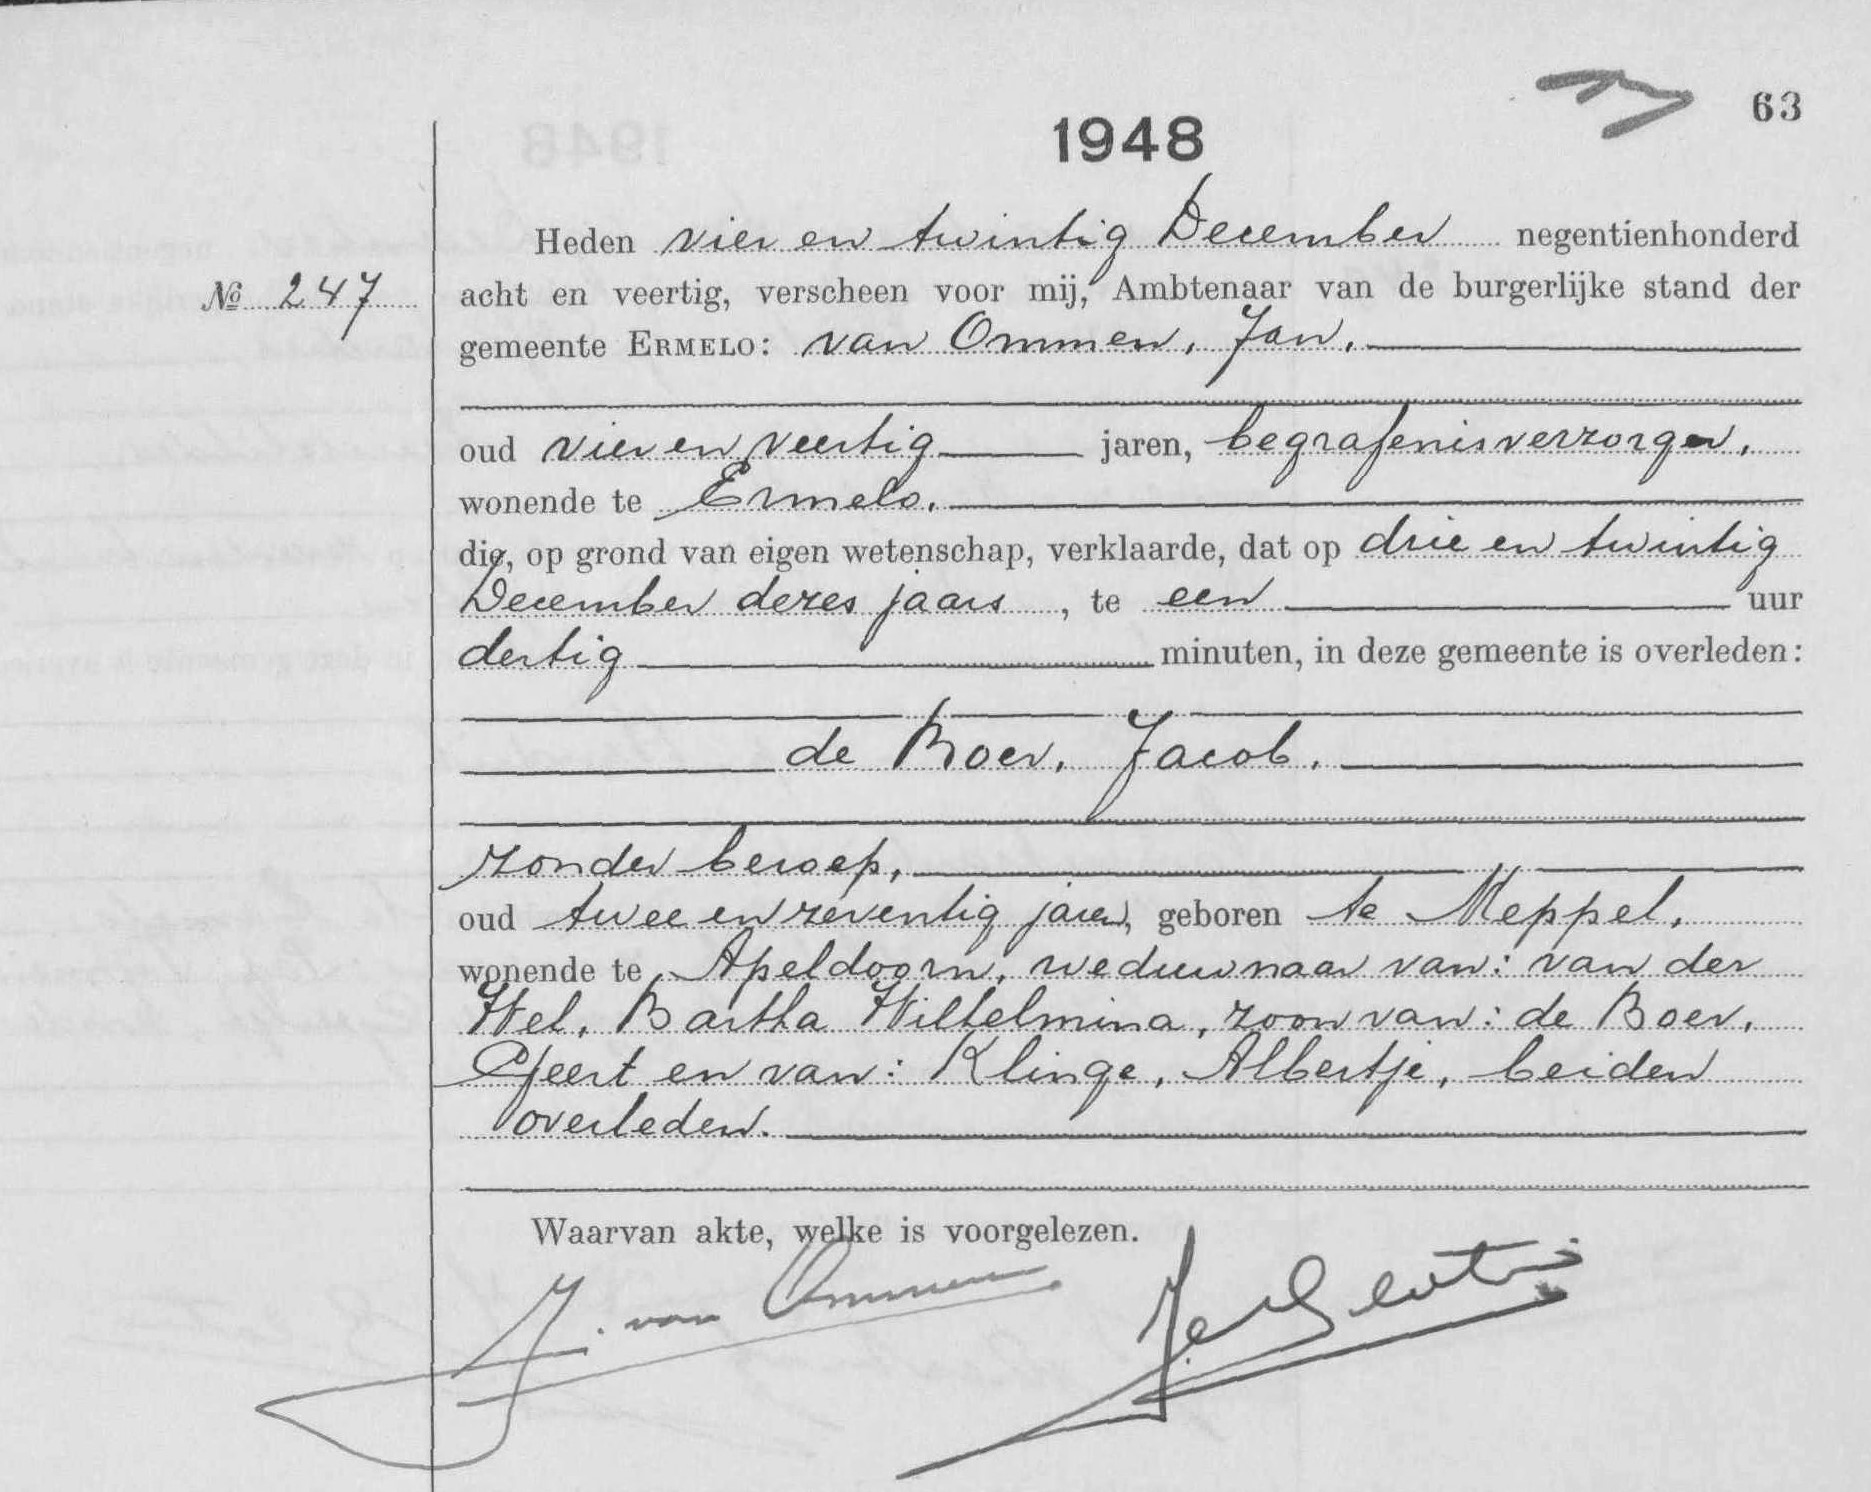 63
1948
No 247
Heden vier en twintig December negentienhonderd
acht en veertig, verscheen voor mij, Ambtenaar van de burgerlijke stand der
gemeente ERMELO: van Ommen, Jan.
oud vier en veertig jaren, begrafenisverzorger,
wonende te Ermelo,
die, op grond van eigen wetenschap, verklaarde, dat op drie en twintig
December dezes jaars, te een uur
dertig minuten, in deze gemeente is overleden:
de Boer, Jacob,
zonder beroep,
oud twee en zeventig jaren, geboren te Meppel,
wonende te Apeldoorn, weduwnaar van: van der
Wel, Bartha Wilhelmina, zoon van: de Boer,
Geert en van: Klinge, Albertje, beiden
overleden.
Waarvan akte, welke is voorgelezen.
J. van Ommen